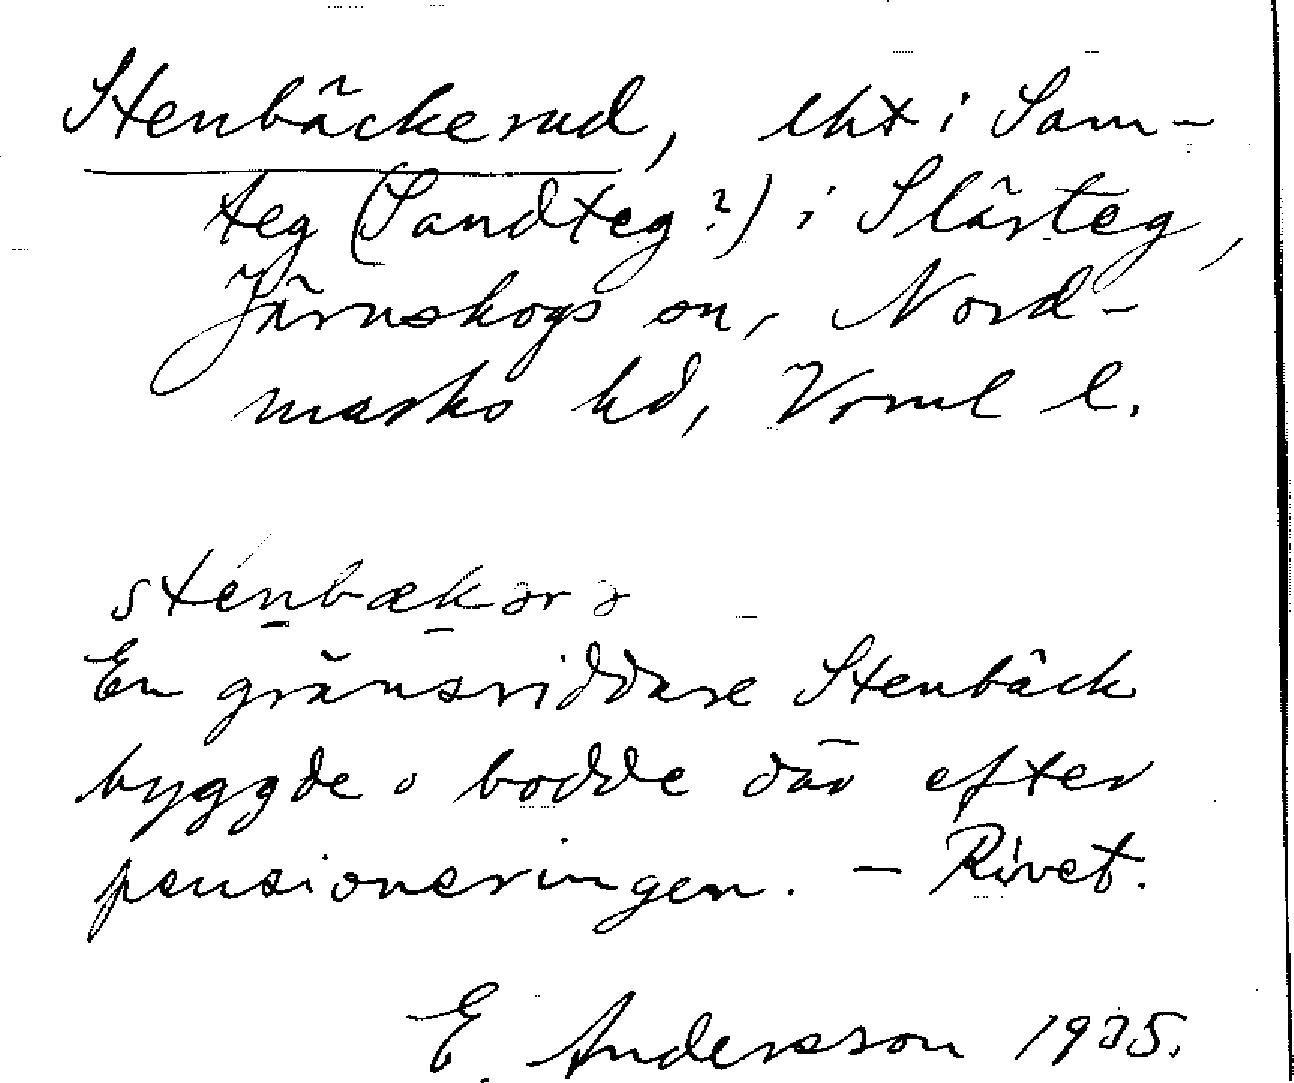 Stenbäckerud, lht i Sam-
teg (Sandteg?) i Slärteg,
Järnskogs sn, Nord-
marks hd, Vrml l.
stenbækərə
En gränsriddare Stenbäck
byggde o bodde där efter
pensioneringen. – Rivet.
E. Andersson 1935.